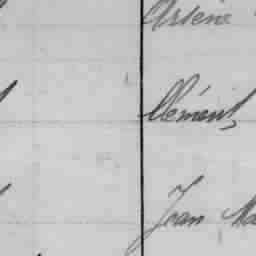 Arsène
Clément
Jean Ma